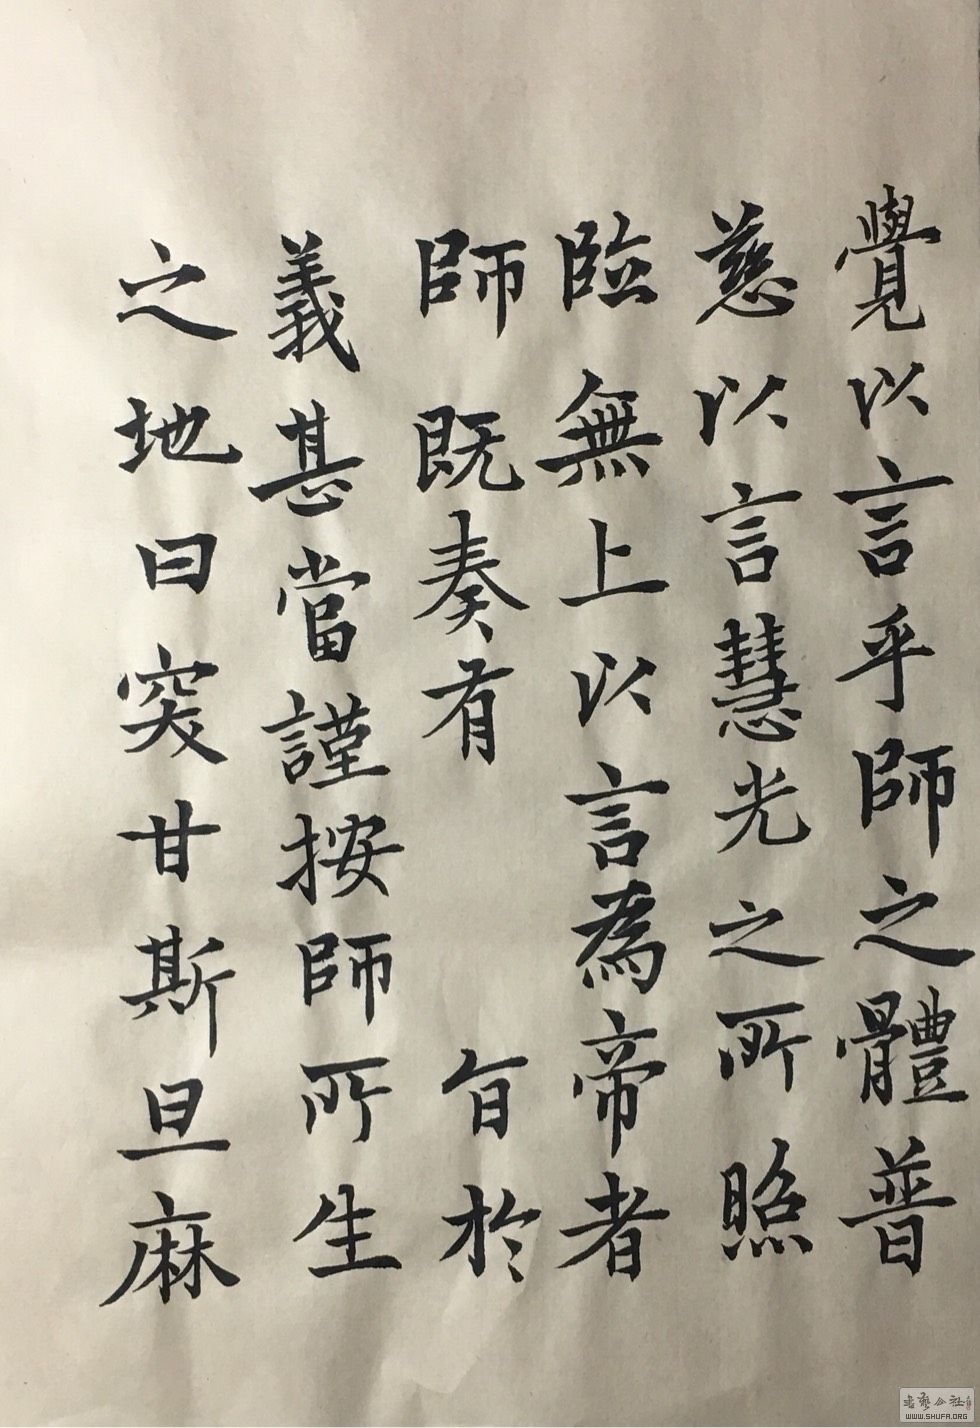 覺以言乎師之體普
慈以言慧光之所照
臨無上以言為帝者
師既奏有 旨於
義甚當謹按師所生
之地曰突甘斯旦麻
书艺公社
WWW.SHUFA.ORG